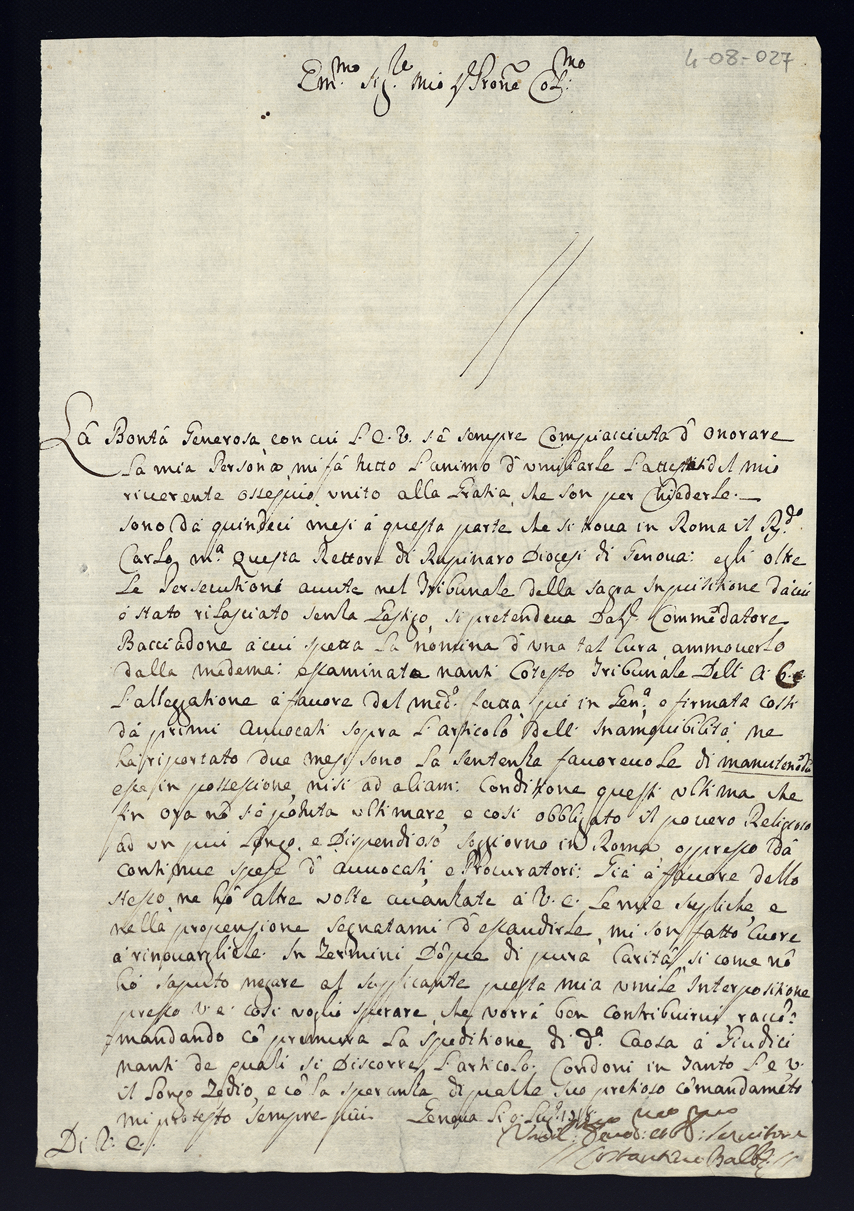 4-08-027
Em.mo Sig.re mio Prone Col.mo
La Bontà Generosa con cui l'E. V. s'è sempre Compiacciuta d'onorare
la mia Persona mi fà tutto l'animo d'umiliarle l'attestati del mio
riverente ossequio unito alla Gratia, che son per chiederle.
sono dà quindeci mesi à questa parte che si trova in Roma il R.do
Carlo M.a Questa Rettore di Rupinaro Diocesi di Genova: egli oltre
le Persecutioni avute nel Tribunale della sagra Inquisitione da cui
è stato rilasciato senza Castigo, si pretendeva Dal Commēdatore
Bacciadone à cui spetta la nomina d'una tal Cura ammoverlo
dalla medema: essaminata nanti Cotesto Tribunale Dell' A. C.
l'allegatione à favore del med.o fatta qui in Gen.a e firmata costì
dà primi Avvocati sopra l'articolo Dell' Inamovibilità, ne
hà riportato due mesi sono la sentenza favorevole di manutenda
esse in possessione, nisi ad aliam: Conditione questa ultima che
fin ora nō s'è potuta ultimare e così obbligato il povero Religioso
ad un più Longo, e Dispendioso soggiorno in Roma oppresso dà
continue spese d'Avvocati, e Procuratori: Già à favore dello
stesso ne hò altre volte avanzate à V. E. le mie suppliche e
nella propensione segnatami d'essaudirle, mi son fatto Cuore
à rinovargliele. In Termini Dōque di pura Carità, si come nō
hò saputo negare al supplicante questa mia umile Interpositione
presso V. E. così voglio sperare, che vorrà ben contribuirvi racco=
mandando cō premura la speditione di d.a Caosa à Giudici
nanti de quali si Discorre l'articolo. Condoni in Tanto l'E. V.
il Longo Tedio, e cō la speranza di qualche suo pretioso cōmandamēto
mi protesto sempre più Genova li 9:
Di V. E. Servitore
Costantino Balbi